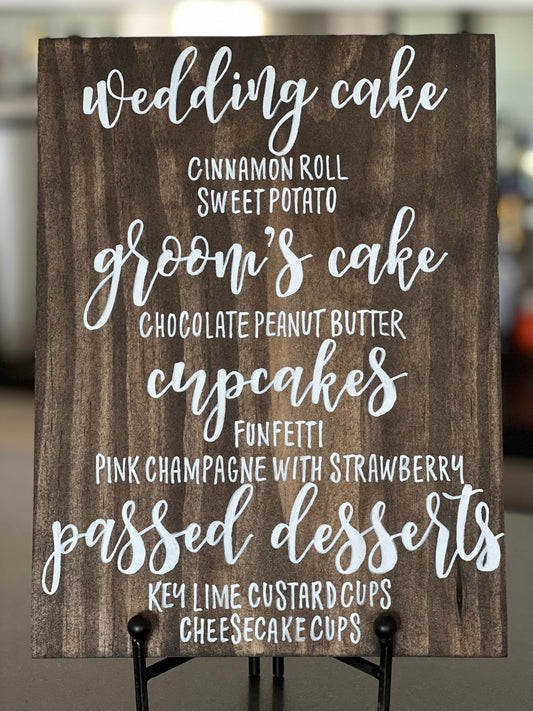 wedding cake
CINNAMON ROLL
SWEET POTATO
groom's cake
CHOCOLATE PEANUT BUTTER
cupcakes
FUNFETTI
PINK CHAMPAGNE WITH STRAWBERRY
passed desserts
KEY LIME CUSTARD CUPS
CHEESECAKE CUPS